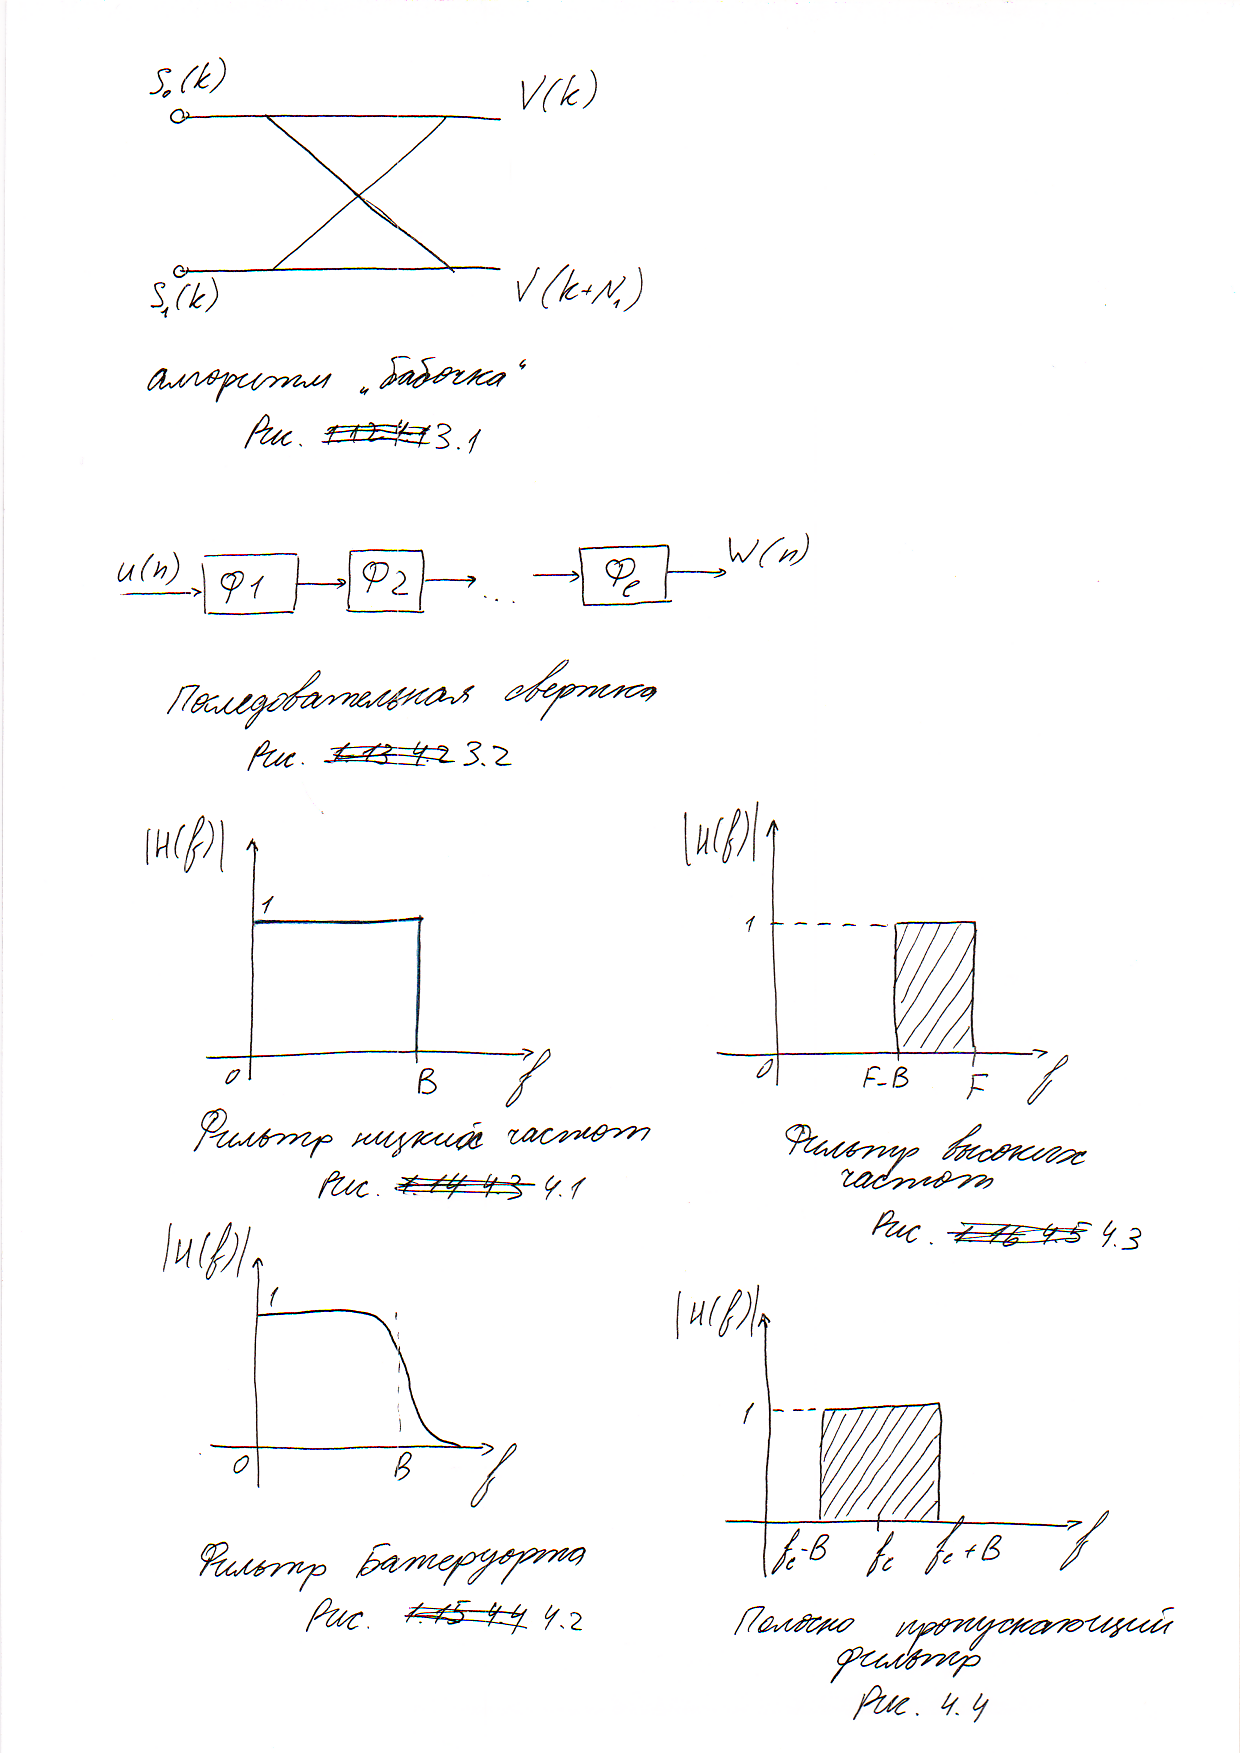 S₀(k)
V(k)
S₁(k)
V(k+N₁)
алгоритм „бабочка“
Рис. 3.1
u(n)
Ф1
Ф2
...
Фe
W(n)
Последовательная свертка
Рис. 1.13 4.2 3.2
|H(f)|
1
0
B
f
Фильтр низких частот
Рис. 1.14 4.3 4.1
|H(f)|
1
0
F-B
F
f
Фильтр высоких
частот
Рис. 1.16 4.5 4.3
|H(f)|
1
0
B
f
Фильтр Батеруорта
Рис. 1.15 4.4 4.2
|H(f)|
1
fc-B
fc
fc+B
f
Полосно пропускающий
фильтр
Рис. 4.4